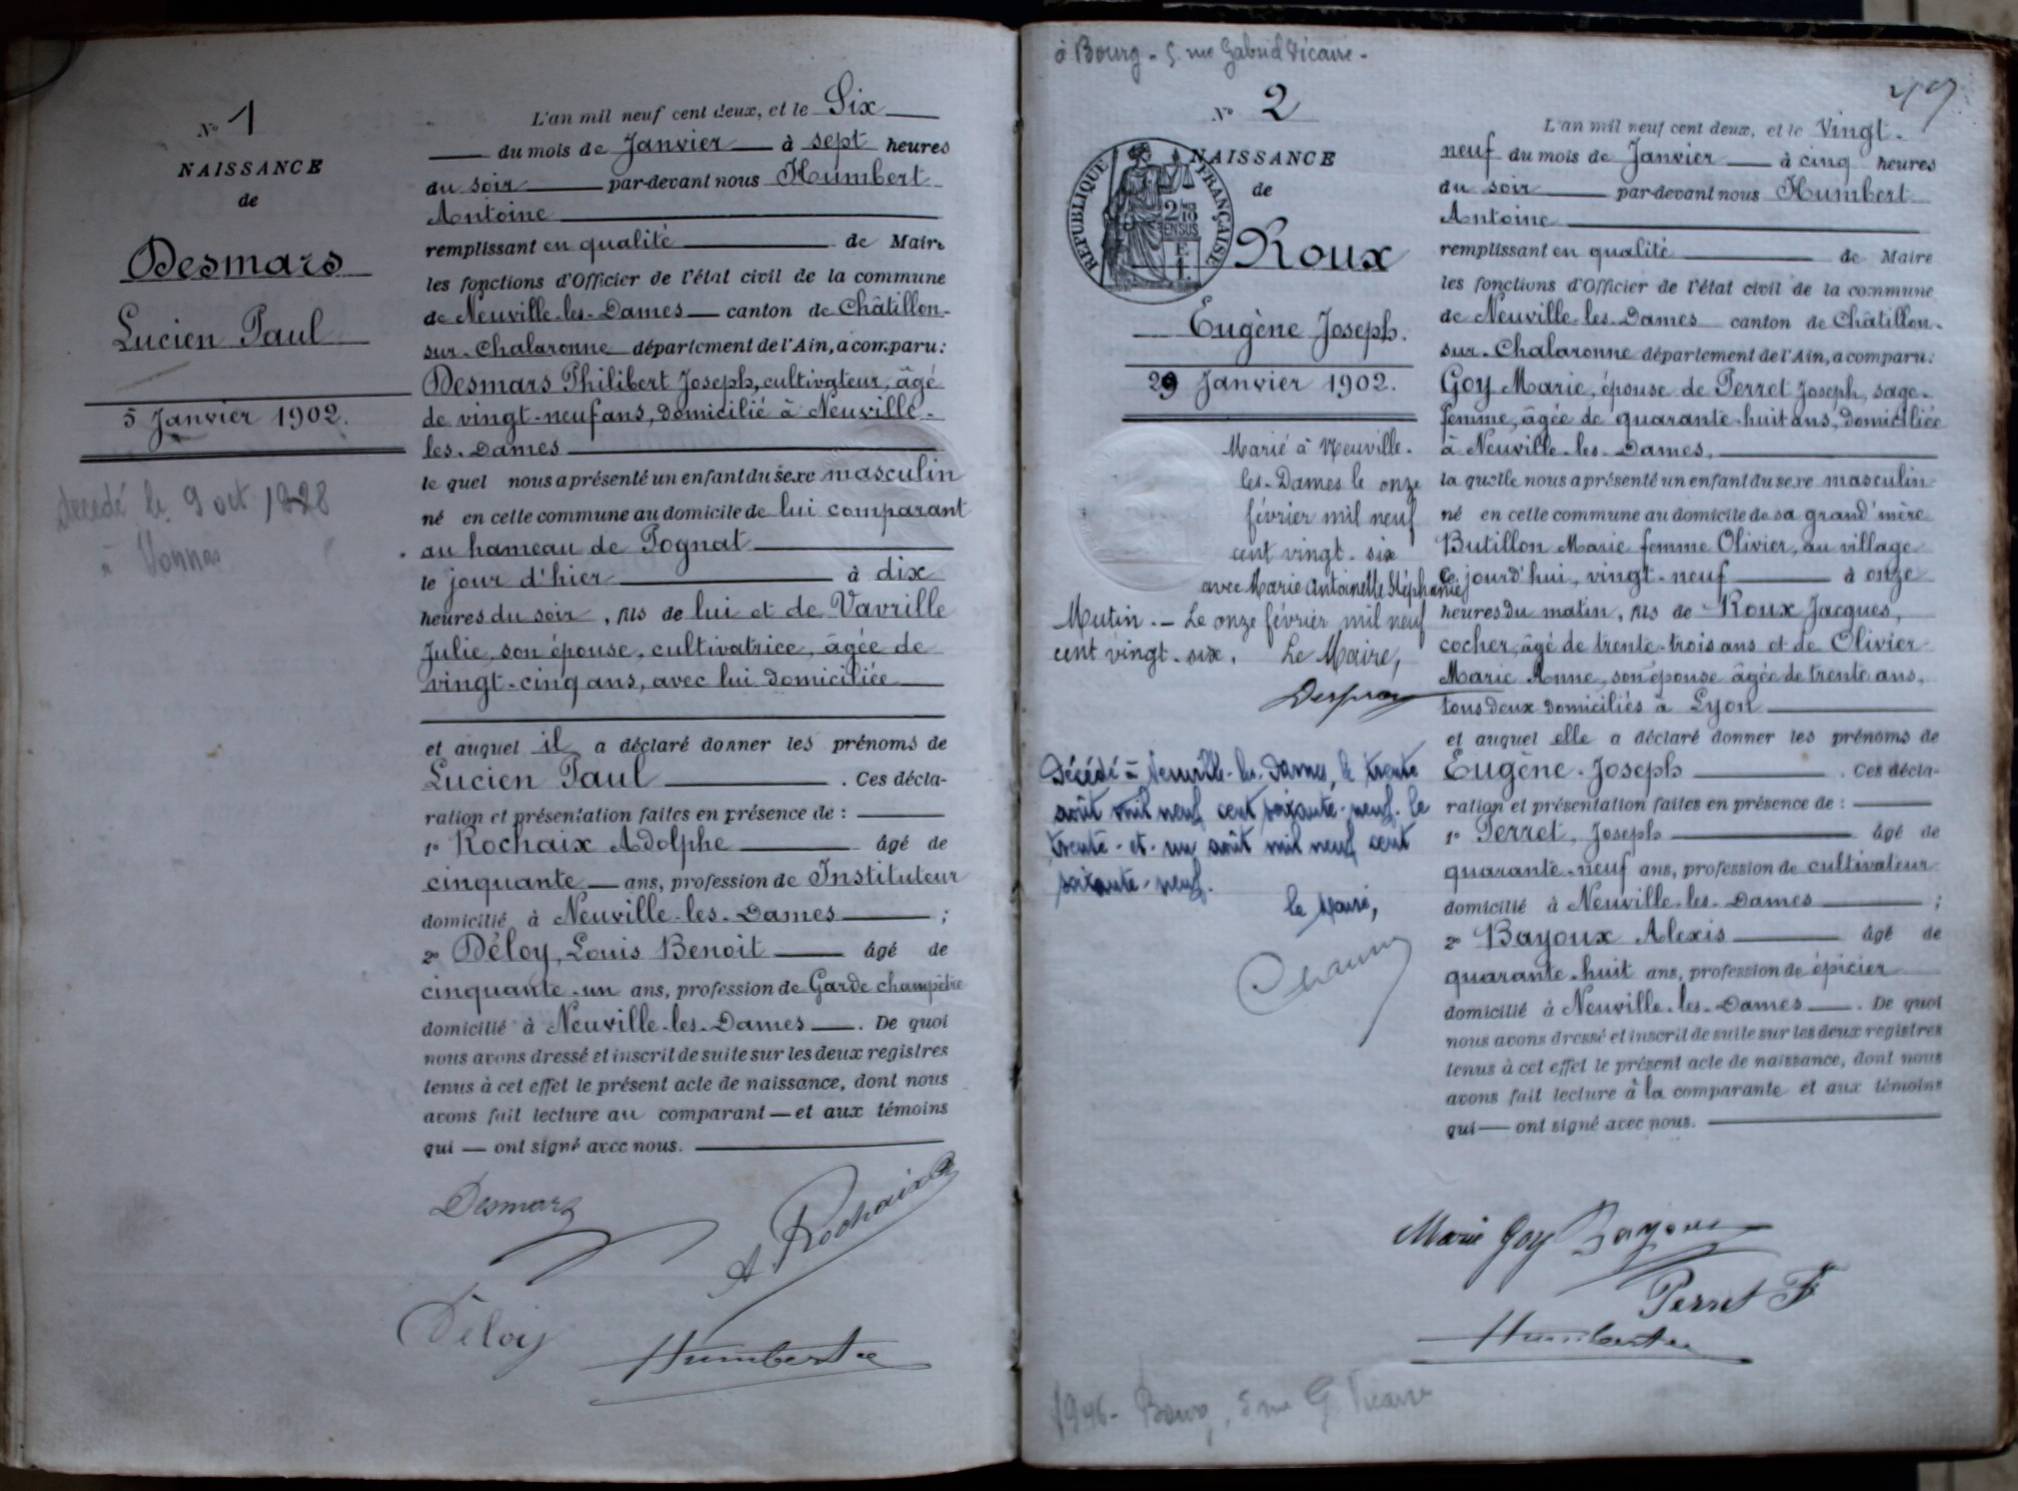 N° 1
NAISSANCE
de
Desmars
Lucien Paul
5 Janvier 1902.
décédé le 9 oct 1928
à Vonnas
L'an mil neuf cent deux, et le Six
du mois de Janvier à sept heures
du soir par-devant nous Humbert
Antoine
remplissant en qualité de Maire
les fonctions d'Officier de l'état civil de la commune
de Neuville-les-Dames canton de Châtillon-
sur-Chalaronne département de l'Ain, a comparu:
Desmars Philibert Joseph, cultivateur, âgé
de vingt-neuf ans, domicilié à Neuville-
les-Dames
le quel nous a présenté un enfant du sexe masculin
né en cette commune au domicile de lui comparant
au hameau de Pognat
le jour d'hier à dix
heures du soir, fils de lui et de Vavrille
Julie, son épouse, cultivatrice, âgée de
vingt-cinq ans, avec lui domiciliée
et auquel il a déclaré donner les prénoms de
Lucien Paul. Ces décla-
ration et présentation faites en présence de :
1° Rochaix Adolphe âgé de
cinquante ans, profession de Instituteur
domicilié à Neuville-les-Dames ;
2° Déloy, Louis Benoit âgé de
cinquante-un ans, profession de Garde champêtre
domicilié à Neuville-les-Dames. De quoi
nous avons dressé et inscrit de suite sur les deux registres
tenus à cet effet le présent acte de naissance, dont nous
avons fait lecture au comparant — et aux témoins
qui — ont signé avec nous.
Desmars
A. Rochaix
Déloy
Humbert
à Bourg - 5 rue Gabriel Vicaire -
49
N° 2
NAISSANCE
de
RÉPUBLIQUE FRANÇAISE
Roux
Eugène Joseph.
29 Janvier 1902.
Marié à Neuville-
les-Dames le onze
février mil neuf
cent vingt-six
avec Marie Antoinette Stéphanie
Mutin. - Le onze février mil neuf
cent vingt-six. Le Maire,
Décédé à Neuville-les-Dames, le trente
août mil neuf cent soixante-neuf. le
trente-et-un août mil neuf cent
soixante-neuf.
le Maire,
L'an mil neuf cent deux, et le Vingt-
neuf du mois de Janvier à cinq heures
du soir par-devant nous Humbert
Antoine
remplissant en qualité de Maire
les fonctions d'Officier de l'état civil de la commune
de Neuville-les-Dames canton de Châtillon-
sur-Chalaronne département de l'Ain, a comparu:
Goy Marie, épouse de Perret Joseph, sage-
femme, âgée de quarante-huit ans, domiciliée
à Neuville-les-Dames,
la quelle nous a présenté un enfant du sexe masculin
né en cette commune au domicile de sa grand'mère
Butillon Marie femme Olivier, au village
Ce jourd'hui, vingt-neuf à onze
heures du matin, fils de Roux Jacques,
cocher, âgé de trente-trois ans et de Olivier
Marie Anne, son épouse âgée de trente ans,
tous deux domiciliés à Lyon
et auquel elle a déclaré donner les prénoms de
Eugène-Joseph. Ces décla-
ration et présentation faites en présence de :
1° Perret, Joseph âgé de
quarante-neuf ans, profession de cultivateur
domicilié à Neuville-les-Dames ;
2° Bayoux Alexis âgé de
quarante-huit ans, profession de épicier
domicilié à Neuville-les-Dames. De quoi
nous avons dressé et inscrit de suite sur les deux registres
tenus à cet effet le présent acte de naissance, dont nous
avons fait lecture à la comparante et aux témoins
qui — ont signé avec nous.
Marie Goy Bayoux
Perret
Humbert
1946 - Bourg, 5 rue G Vicaire